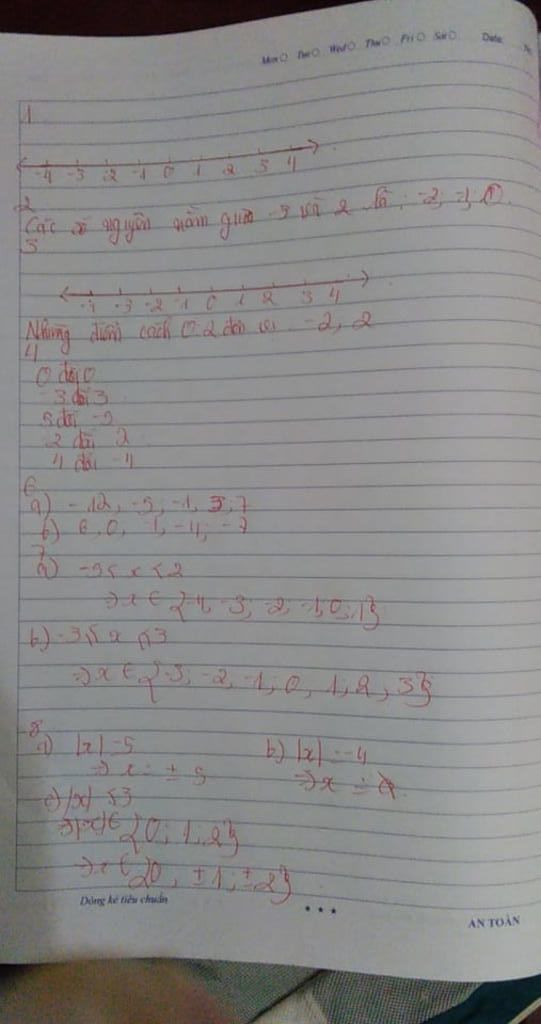 Mon Tue Wed Thu Fri Sat Date
1
-4 -3 -2 -1 0 1 2 3 4
2
Các số nguyên nằm giữa -3 và 2 là: -2, -1, 0, 1
3
-4 -3 -2 -1 0 1 2 3 4
Những điểm cách 0 2 đơn vị -2, 2
4
0 đối 0
-3 đối 3
5 đối -5
-2 đối 2
4 đối -4
6
a) -12, -5, -1, 3, 7
b) 6, 0, -1, -4, -7
7
a) -5 < x < 2
=> x ∈ {-4; -3; -2; -1; 0; 1}
b) -3 ≤ x ≤ 3
=> x ∈ {-3; -2, -1; 0, 1; 2, 3}
8
a) |x| = 5 b) |x| = -4
=> x = ± 5 => x =
c) |x| < 3
=> |x| ∈ {0; 1; 2}
=> x ∈ {0, ±1; ±2}
Dòng kẻ tiêu chuẩn
AN TOÀN